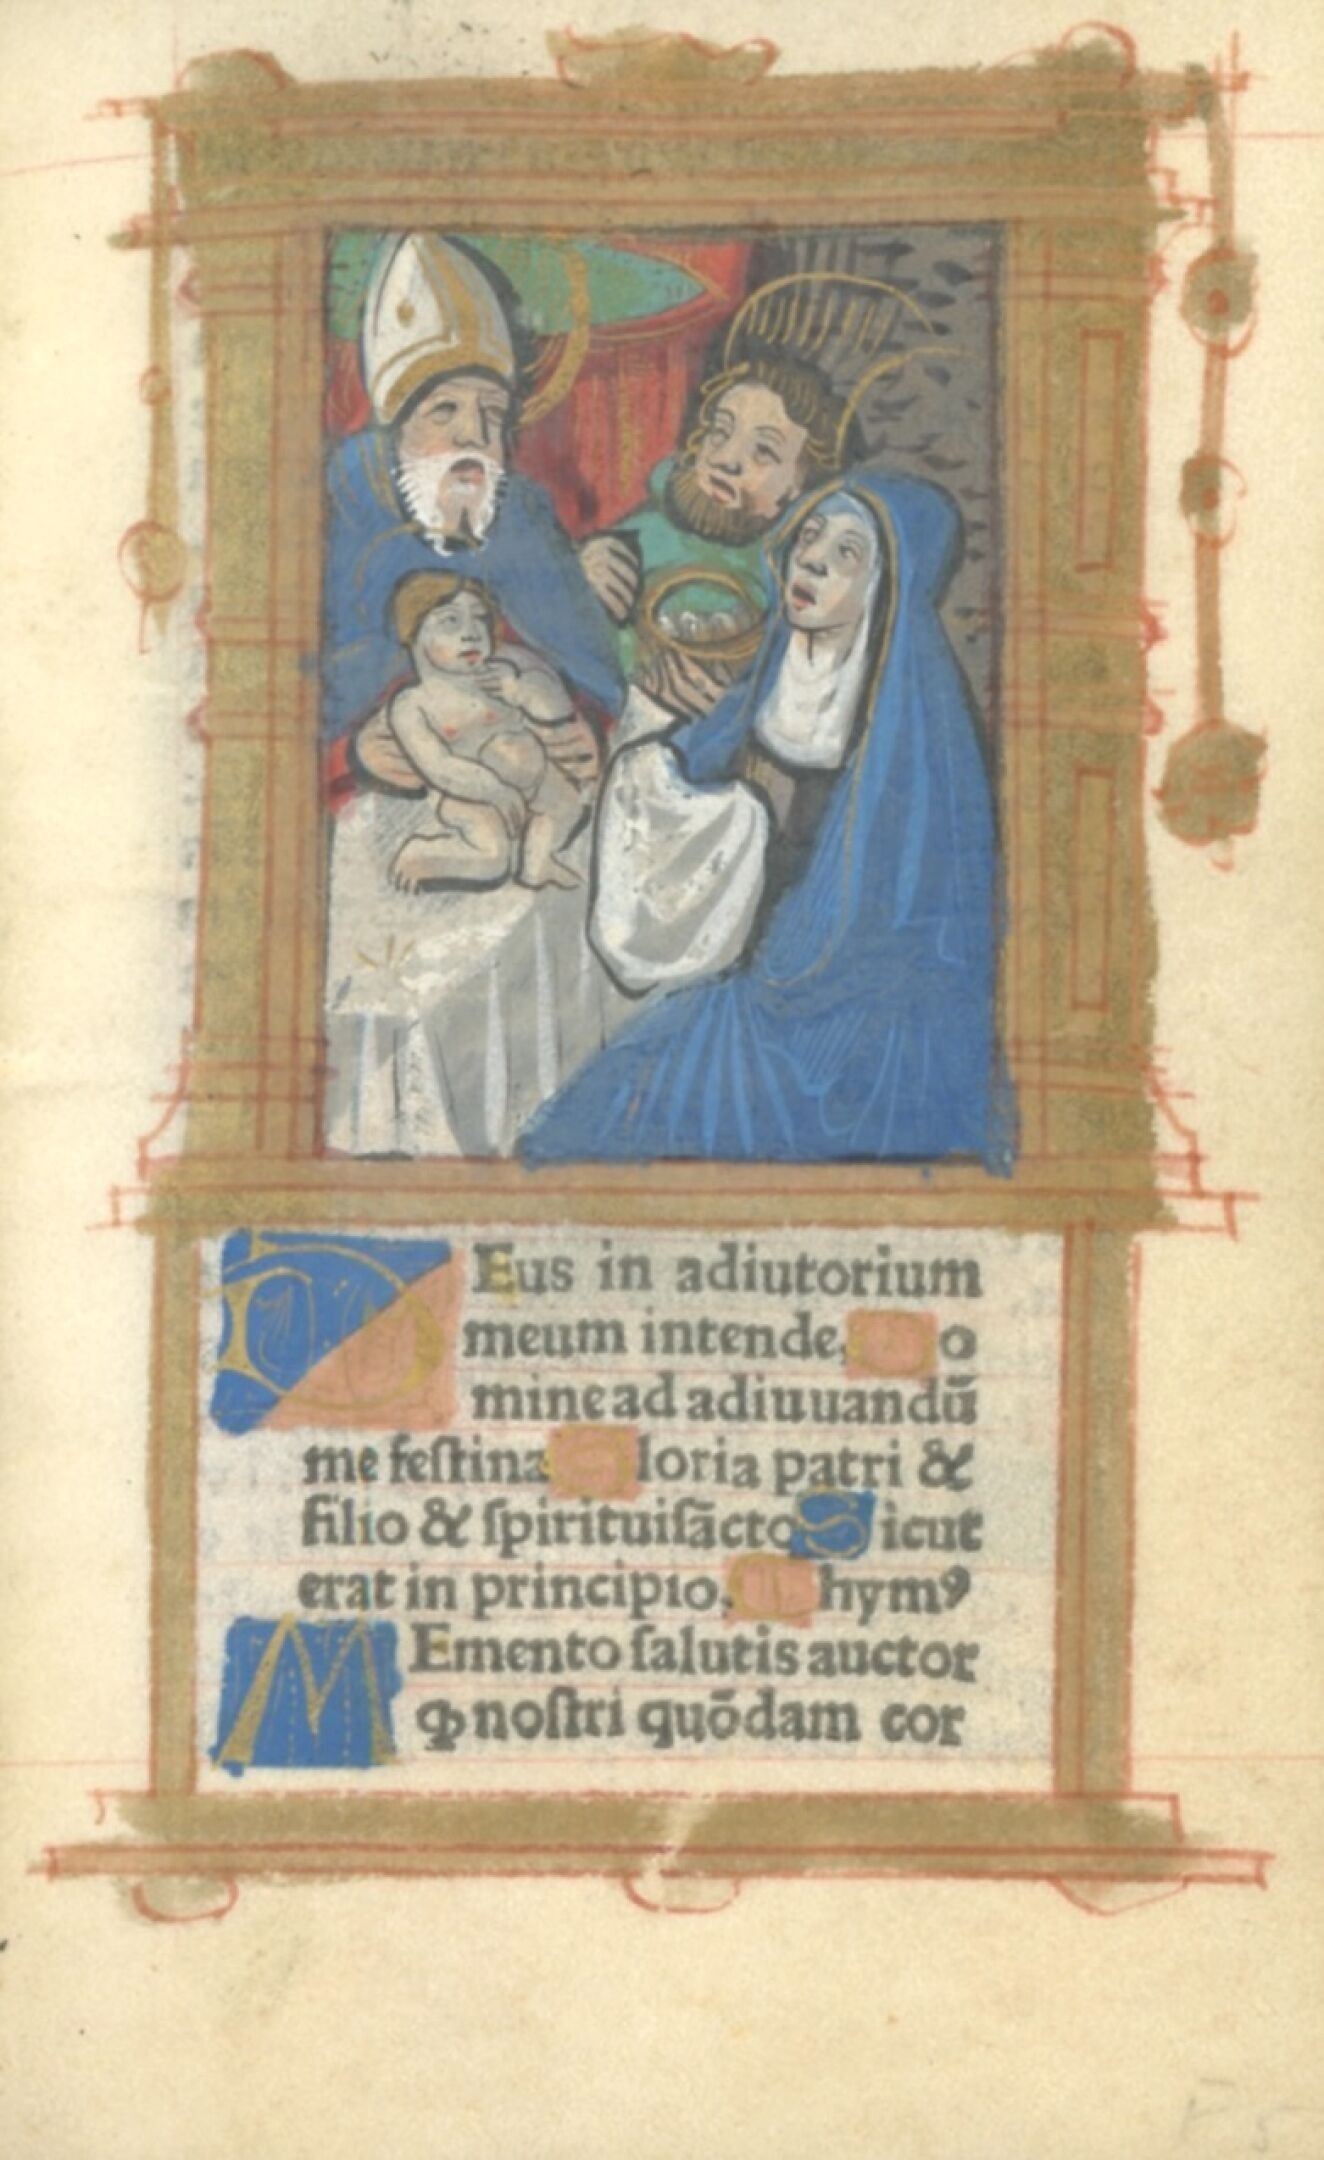 DEus in adiutorium
meum intende, Do
mine ad adiuuandū
me feſtina Gloria patri &
filio & ſpirituiſācto Sicut
erat in principio, hymꝰ
MEmento ſalutis auctor
ꝙ noſtri quōdam cor